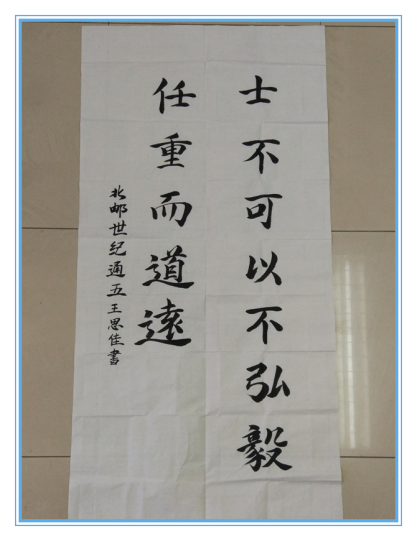 士不可以不弘毅
任重而道遠
北邮世纪通五王思佳書